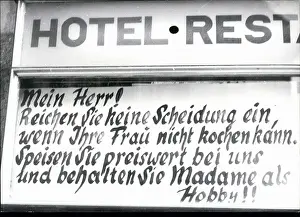 HOTEL • RESTA
Mein Herr!
Reichen Sie keine Scheidung ein,
wenn Ihre Frau nicht kochen kann.
Speisen Sie preiswert bei uns
und behalten Sie Madame als
Hobby!!